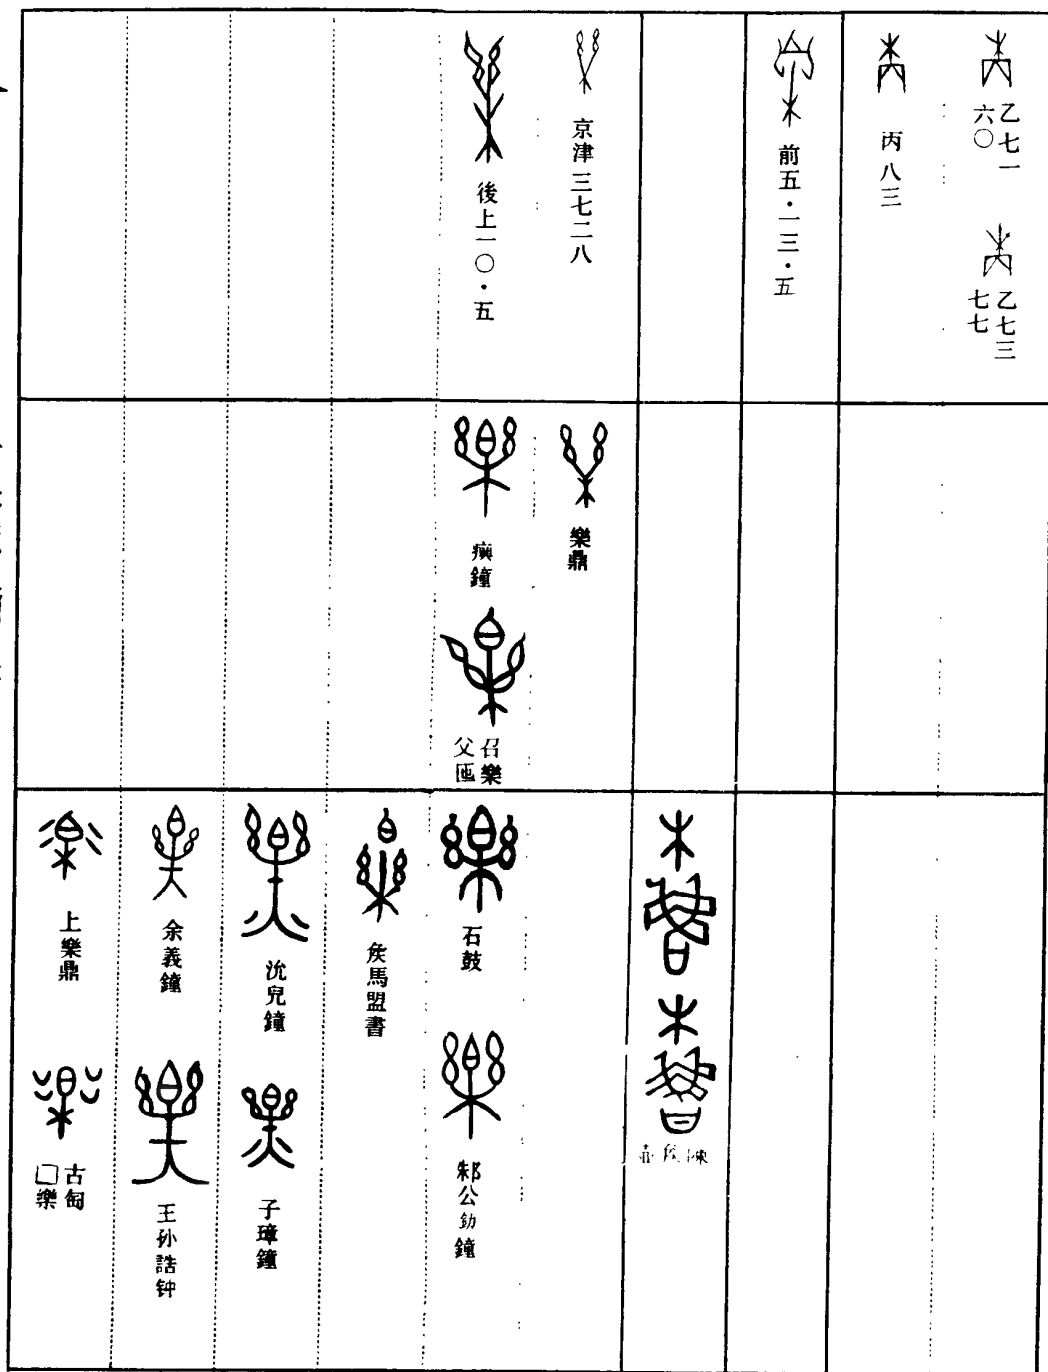 乙七一
六〇
乙七三
七七
丙八三
前五·一三·五
京津三七二八
後上一〇·五
樂鼎
𤼈鐘
召樂
父匜
陳侯壺
石鼓
邾公釛鐘
侯馬盟書
沇兒鐘
子璋鐘
余義鐘
王孙誥钟
上樂鼎
古匋
□樂